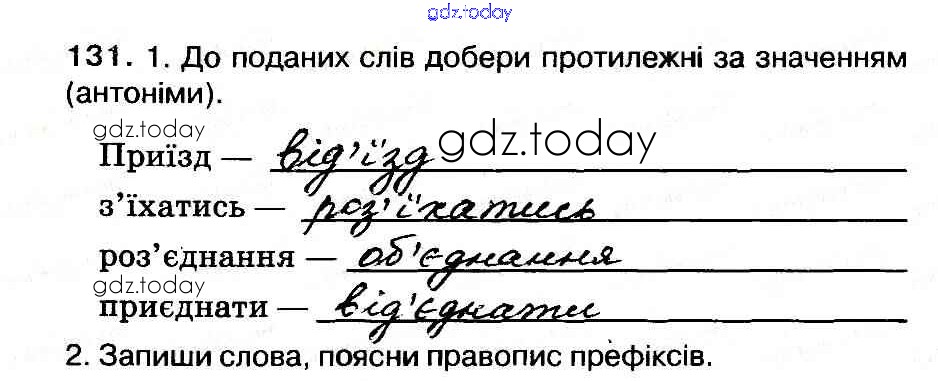 gdz.today
131. 1. До поданих слів добери протилежні за значенням
(антоніми).
gdz.today
Приїзд — від'їзд gdz.today
з'їхатись — роз'їхатись
роз'єднання — об'єднання
gdz.today
приєднати — від'єднати
2. Запиши слова, поясни правопис префіксів.